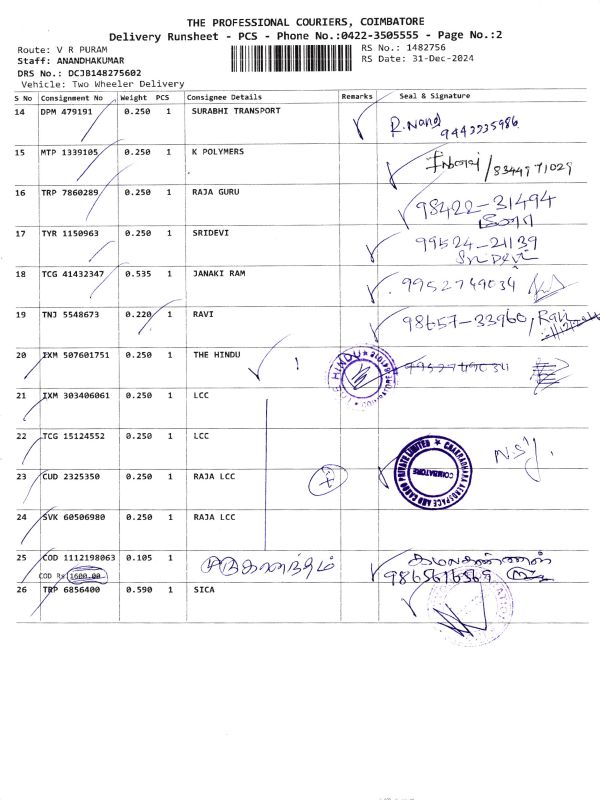 THE PROFESSIONAL COURIERS, COIMBATORE
Delivery Runsheet - PCS - Phone No.:0422-3505555 - Page No.:2
Route: V R PURAM
RS No.: 1482756
Staff: ANANDHAKUMAR
RS Date: 31-Dec-2024
DRS No.: DCJB148275602
Vehicle: Two Wheeler Delivery
S No Consignment No Weight PCS Consignee Details Remarks Seal & Signature
14 DPM 479191 0.250 1 SURABHI TRANSPORT R.Nand
9443935986
15 MTP 1339105 0.250 1 K POLYMERS /8344971029
16 TRP 7860289 0.250 1 RAJA GURU 98422-31494
17 TYR 1150963 0.250 1 SRIDEVI 99524-21139
Sri Devi
18 TCG 41432347 0.535 1 JANAKI RAM 9952749034
19 TNJ 5548673 0.220 1 RAVI 98657-33960, Ravi
20 IXM 507601751 0.250 1 THE HINDU THE HINDU
21 IXM 303406061 0.250 1 LCC
22 TCG 15124552 0.250 1 LCC
23 CUD 2325350 0.250 1 RAJA LCC CHAKRADHARA AEROSPACE AND CARGO PRIVATE LIMITED COIMBATORE
24 SVK 60506980 0.250 1 RAJA LCC
25 COD 1112198063 0.105 1 கமலகண்ணன்
COD Rs 1600.00
26 TRP 6856400 0.590 1 SICA